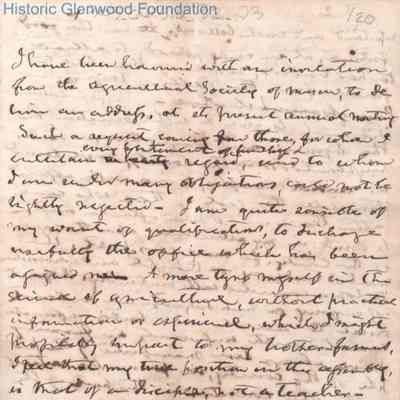 Historic Glenwood Foundation
1/20
I have been honored with an invitation
from the Agricultural Society of to de
liver an address, at its present annual meeting
Such a request coming from those, for whom I
every sentiment of
entertain regard, and to whom
I am under many obligations, not be
lightly neglected - I am quite sensible of
my want of qualifications, to discharge
usefully the office which has been
assigned me - A mere tyro myself in the
science of agriculture, without practical
information or experience, which I might
profitably impart to my brother farmers,
I feel that my true position in this assembly,
is that of a disciple, not a teacher -